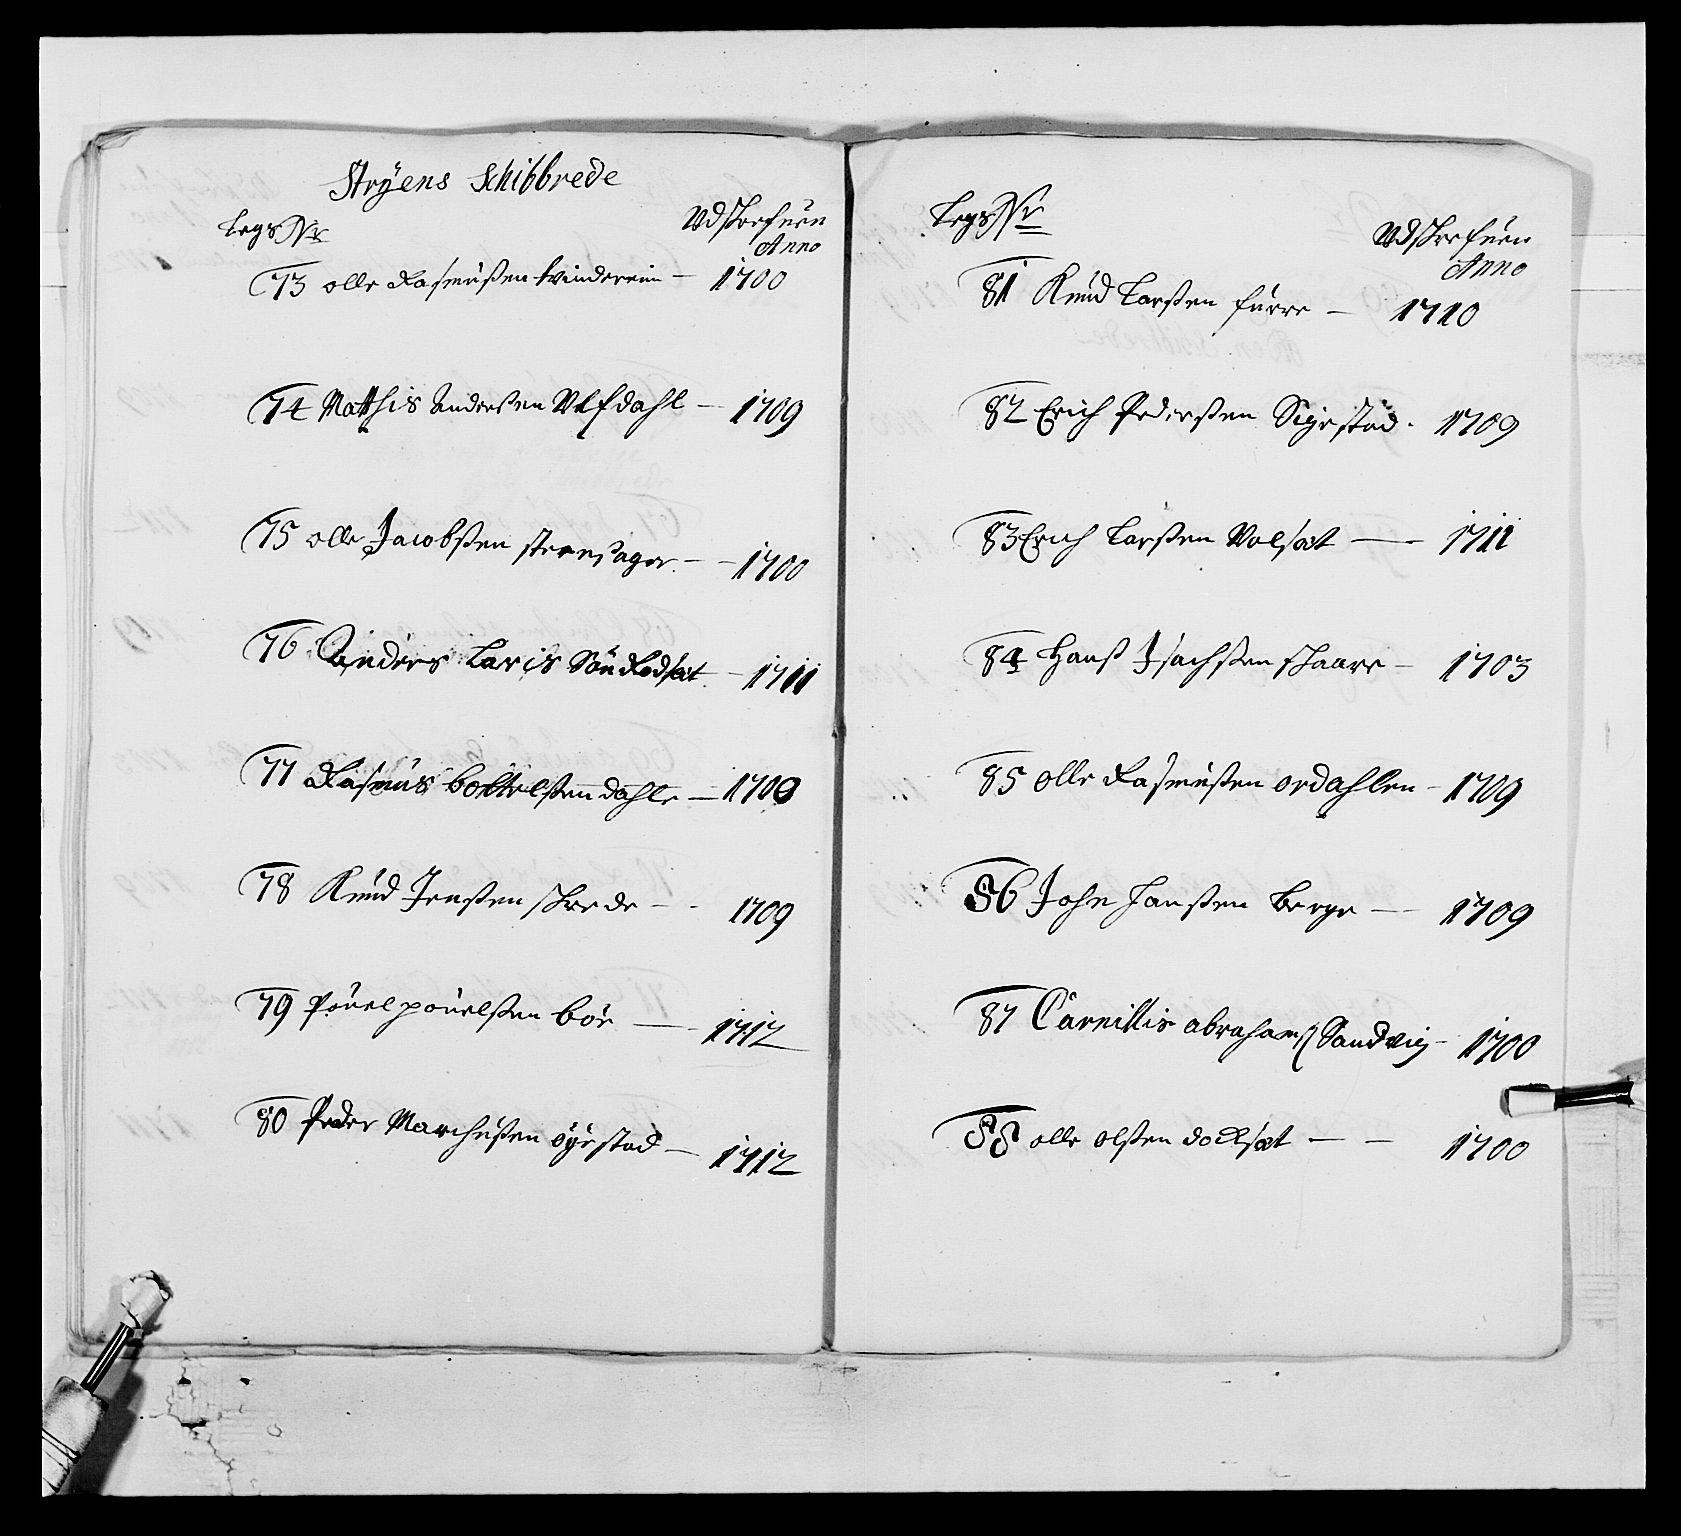 Strÿens Schibbrede
Legs Nr
Udskrefuen
Anno
73 olle Rasmusßen kvindereim — 1700
74 Matthis Anderßen Ulfdahl — 1709
75 olle Jacobßen steensager — 1700
76 Anders Laris Sönd Rødsæt — 1711
77 Rasmus bottelßen dahle — 1700
78 Knud Jenßen skrede — 1709
79 Pouel pouelßen böe — 1712
80 Peder Marchusßen öÿestad — 1712
Legs Nr
Udskrefuen
Anno
81 Knud Larßen furre — 1710
82 Erich Pederßen Sigestad. 1709
83 Erich Larßen Wolsæt — 1711
84 Hanß Isachßen skaare — 1703
85 olle Rasmusßen ordahlen — 1709
86 John Hanßen Berge — 1709
87 Cornillis abraham Sandvig — 1700
88 olle olßen docksæt — 1700